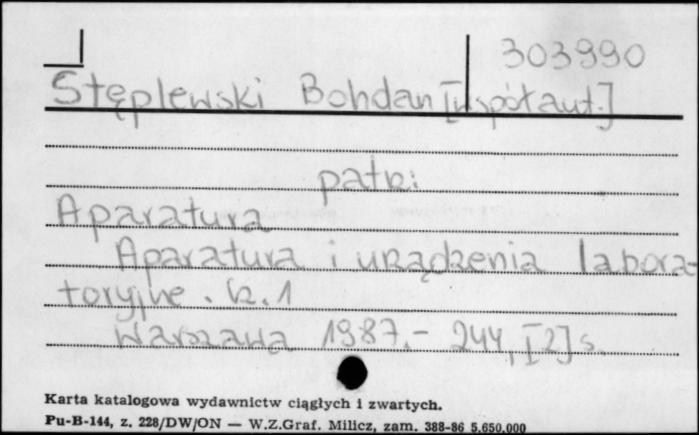 303990
Stęplewski Bohdan [współaut.]
patrz:
Aparatura
Aparatura i urządzenia labora-
toryjne. Cz. 1
Warszawa 1987.- 244, [2] s.
Karta katalogowa wydawnictw ciągłych i zwartych.
Pu-B-144, z. 228/DW/ON — W.Z.Graf. Milicz, zam. 388-86 5.650.000